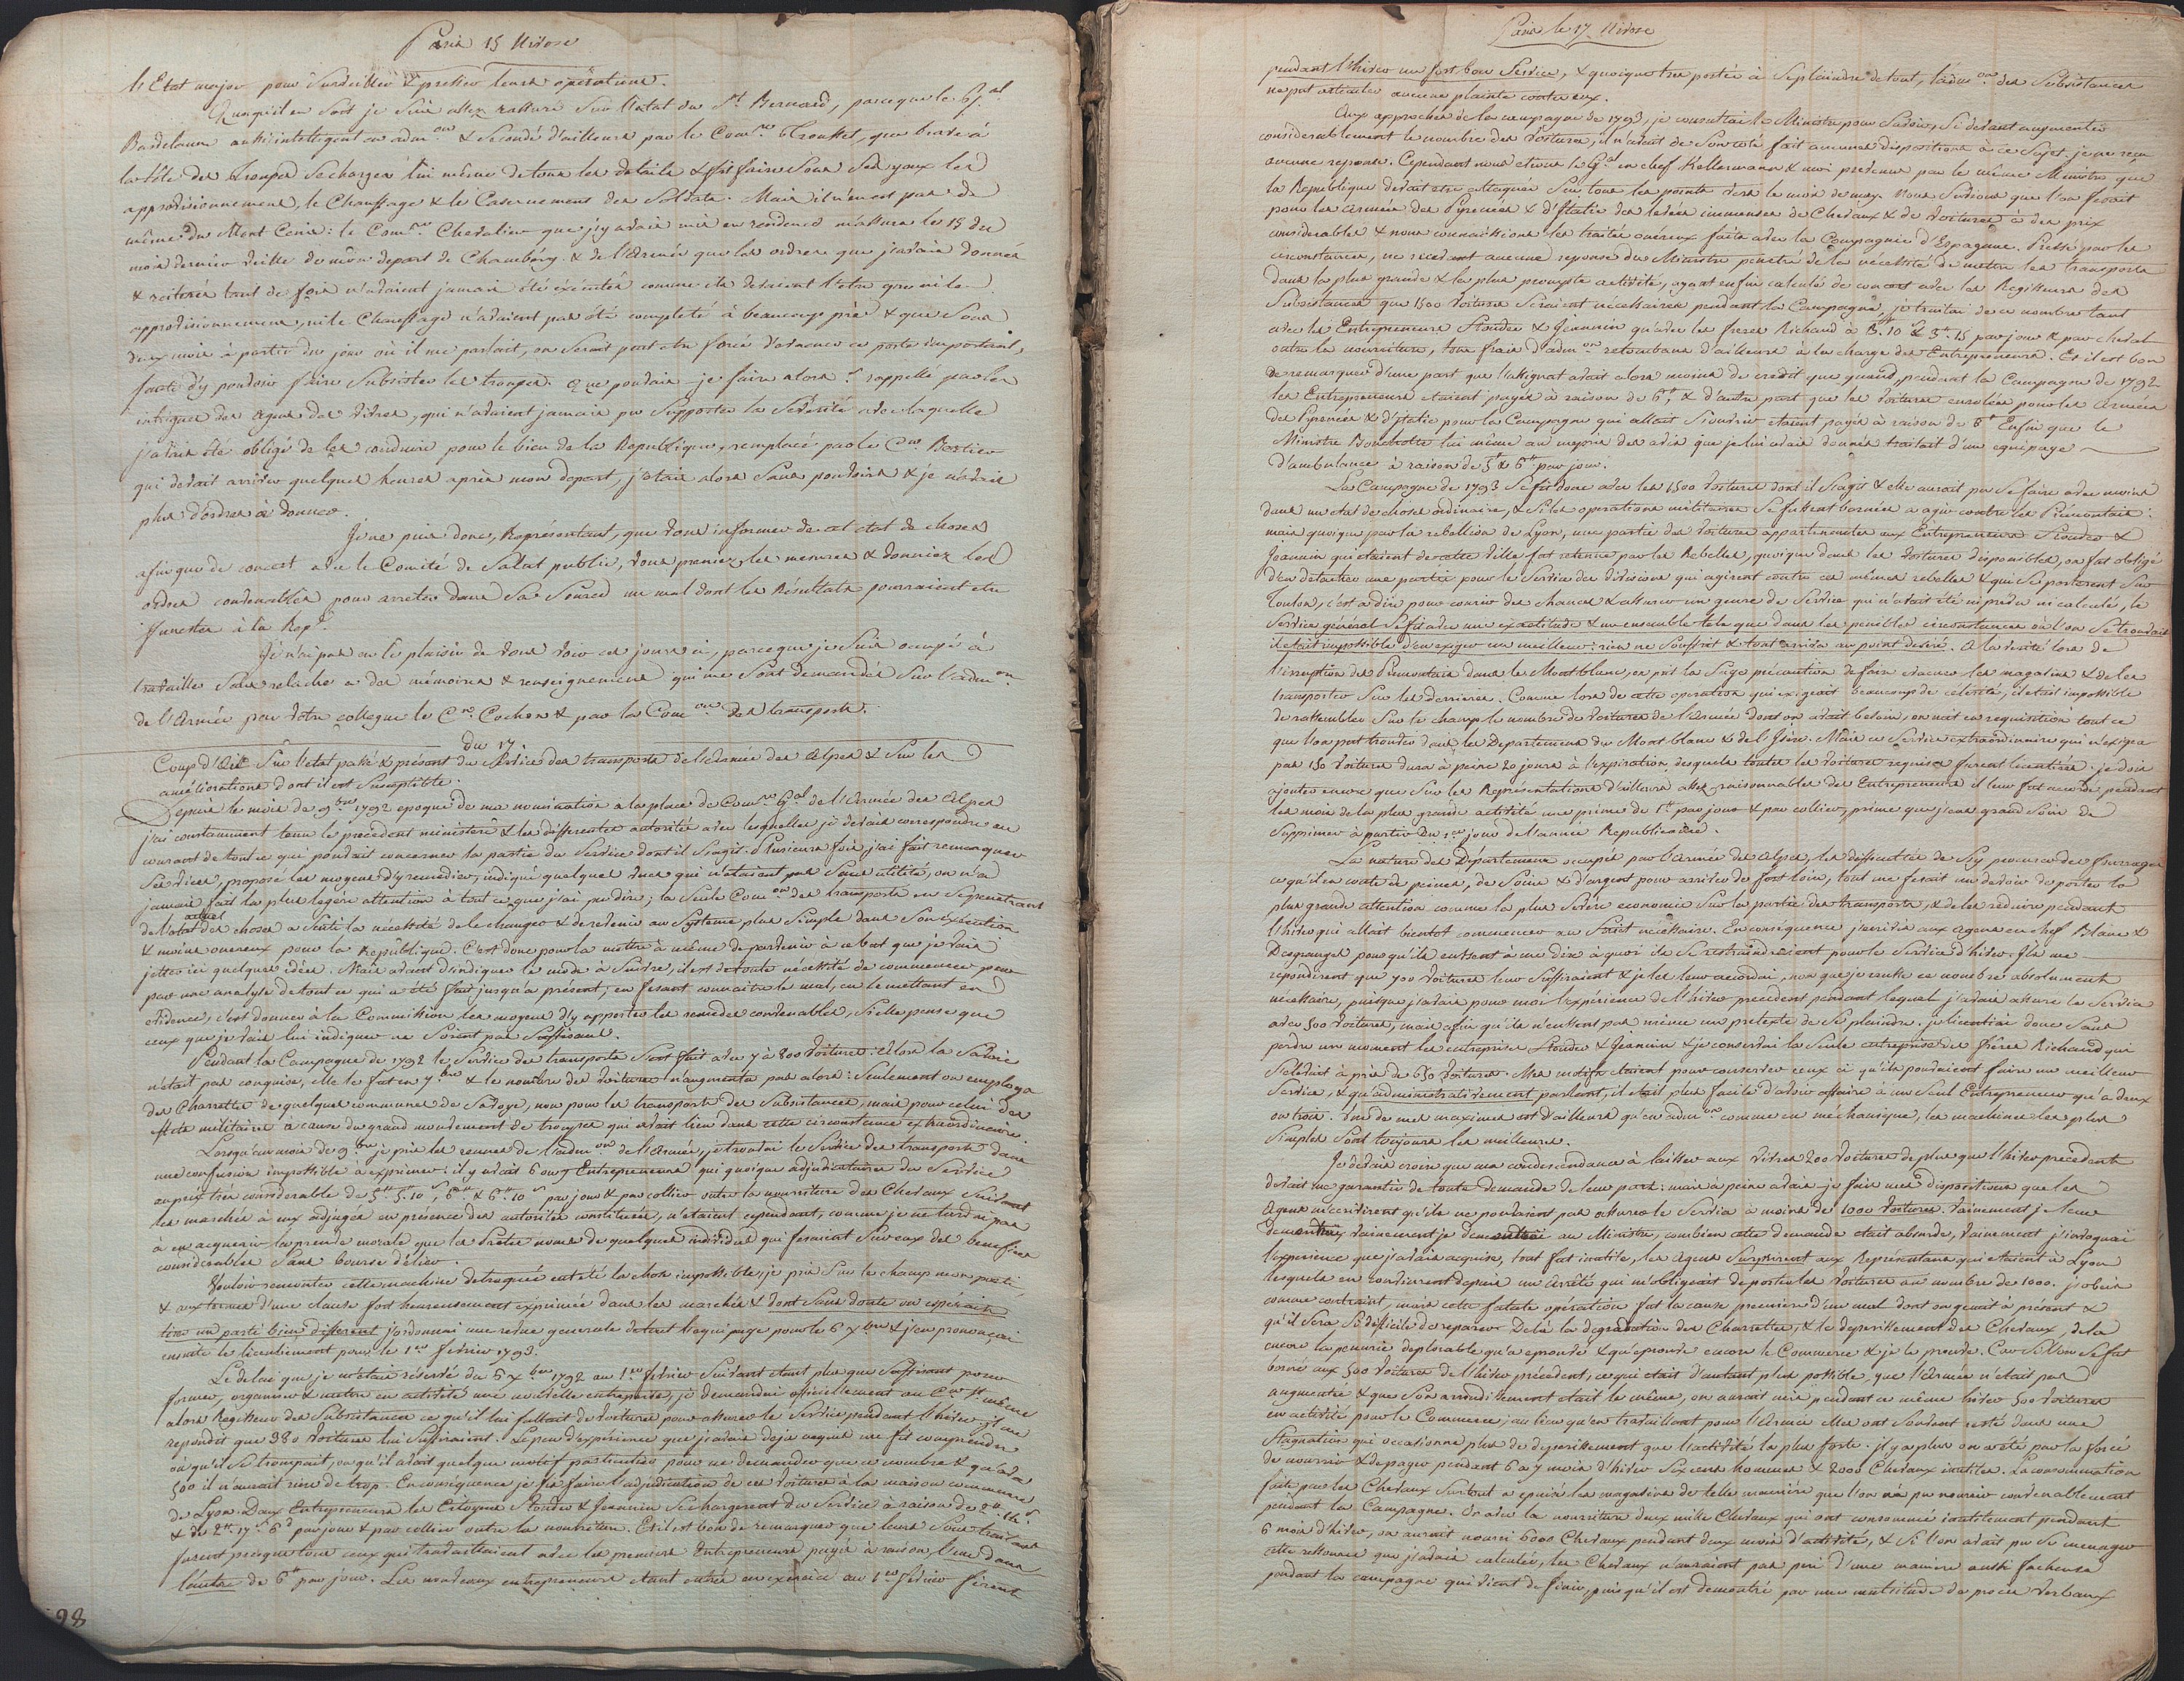 Paris 15 Nivose
l'Etat major pour surveiller & presser leurs opérations.
Quoiqu'il en soit je suis assez rassuré sur l'etat du St Bernard, parceque le Gal
Badelaune aussi intelligent en admon & secondé d'ailleurs par le Comre Trousset, qu'en brave à
la tête des troupes se charge lui même de tous les details & fit faire sous ses yeux les
approvisionnemens, le Chauffage & le Casernement des Soldats. Mais il n'en est pas de
même du Mont Cenis: le Comre Chevalier que j'y avais mis en residence m'assura le 15 du
mois dernier veille de mon depart de Chambéry & de l'Armée que les ordres que j'avais donnés
& réiterés tant de fois n'avaient jamais été exécutés comme ils devaient l'etre que ni les
approvisionnemens, ni le Chauffage n'avaient pas été completé à beaucoup près & que sous
deux mois à partir du jour où il me parlait, on serait peut etre forcé d'evacuer ce poste important,
faute d'y pouvoir faire subsister les troupes. Que pouvais-je faire alors? rappellé par les
intrigues des agens des vivres, qui n'avaient jamais pu supporter la sévérité avec laquelle
j'avais été obligé de les conduire pour le bien de la République, remplacé par le Cen Bertier
qui devait arriver quelques heures après mon depart, j'étais alors sans pouvoirs & je n'avais
plus d'ordres à donner.
Je ne puis donc, Représentant, que vous informer de cet etat de choses
afin que de concert avec le Comité de Salut public, vous preniez les mesures & donniez les
ordres convenables pour arreter dans sa source un mal dont les résultats pourraient etre
funestes à la Repe.
Je n'ai pas eu le plaisir de vous voir ces jours ci, parceque je suis occupé à
travailler sans relache a des mémoires & renseignemens qui me sont demandés sur l'admon
de l'Armée par votre collegue le Cen Cochon & par la Comon des transports.
du 17.
Coup d'Œil sur l'etat passé & présent du service des transports de l'Armée des Alpes & sur les
améliorations dont il est susceptible.
Depuis le mois de 9bre 1792 epoque de ma nomination a la place de Comre Gal de l'Armée des Alpes
j'ai constamment tenu le précédent ministère & les différentes autorités avec lesquelles je devais correspondre au
courant de tout ce qui pouvait concerner la partie du service dont il s'agit. Plusieurs fois j'ai fait remarquer
ses vices, proposé les moyens d'y remedier, indiqué quelques vues qui n'etaient pas sans utilité, on n'a
jamais fait la plus légère attention à tout ce que j'ai pu dire; la seule Comon des transports en se pénétrant
de l'etat actuel des choses a senti la nécessité de le changer & de revenir au système plus simple dans son exécution
& moins onereux pour la République. C'est donc pour la mettre à même de parvenir à ce but que je vais
jetter ici quelques idées. Mais avant d'indiquer le mode à suivre, il est de toute nécessité de commencer
par une analyse de tout ce qui a été fait jusqu'à présent; en fesant connaitre le mal, en le mettant en
evidence, c'est donner à la Commission les moyens d'y apporter les remèdes convenables, si elle pense que
ceux que je vais lui indiquer ne soient pas suffisans.
Pendant la Campagne de 1792 le service des transports s'est fait avec 7 à 800 voitures: alors la Savoie
n'était pas conquise, elle le fut en 7bre & le nombre des voitures n'augmenta pas alors: seulement on employa
des Charrettes de quelques communes de Savoye, non pour les transports des subsistances, mais pour celui des
effets militaires à cause du grand mouvement de troupes qui avait lieu dans cette circonstance extraordinaire.
Lorsqu'au mois de 9bre je pris les renes de l'admon de l'Armée, je trouvai le service des transports dans
une confusion impossible à exprimer: il y avait 6 ou 7 Entrepreneurs qui quoique adjudicataires du service
au prix très considerable de 5# 5.10s, 6# & 6# 10s par jour & par collier outre la nourriture des Chevaux suivant
les marchés à eux adjugés en présence des autorités constituées, n'etaient cependant, comme je ne tardai pas
à en acquerir la preuve morale que les Prête-noms de quelques individus qui fesaient sur eux des benefices
considerables sans bourse délier.
Vouloir remonter cette machine detraquée eut été la chose impossible, je pris sur le champ mon parti
& aux termes d'une clause fort heureusement exprimée dans les marchés & dont sans doute on espérait
tirer un parti bien different, j'ordonnai une revue generale de tout l'equipage pour le 6 Xbre & j'en prononcai
ensuite le licentiement pour le 1er fevrier 1793.
Le delai que je m'étais réservé du 6 Xbre 1792 au 1er fevrier suivant etant plus que suffisant pour
former, organiser & mettre en activité une nouvelle entreprise, je demandai officiellement au Cen St même
alors Régisseur des Subsistances ce qu'il lui fallait de voitures pour assurer le service pendant l'hiver; il me
repondit que 380 voitures lui suffiraient. Le peu d'expérience que j'avais deja acquis me fit comprendre
où qu'il se trompait, ou qu'il avait quelque motif particulier pour ne demander que ce nombre & qu'avec
500 il n'aurait rien de trop. En conséquence je fis faire l'adjudication de ces voitures à la maison commune
de Lyon. Deux Entrepreneurs les Citoyens Stouder & Jeannin se chargerent du service à raison de 2# 16s
& de 2# 17s 6d par jour & par collier outre la nourriture. Et il est bon de remarquer que leurs sous-traitans
furent presque tous ceux qui traavailaient avec les premiers Entrepreneurs payés à raison l'un dans
l'autre de 6# par jour. Les nouveaux entrepreneurs etant entrés en exercice au 1er fevrier firent
98
Paris le 17 Nivose
pendant l'hiver un fort bon service, & quoique tres portée à se plaindre de tout, l'admon des Subsistances
ne put articuler aucune plainte contre eux.
Aux approches de la campagne de 1793, je consultai le Ministre pour savoir si devant augmenter
considerablement le nombre des voitures, il n'avait de son coté fait aucunes dispositions à ce sujet. je ne recu
aucune reponse. Cependant nous etions le Gal en chef Kellermann & moi prevenus par le même Ministre que
la République devait etre attaquée sur tous les points vers le mois de may. Nous savions que l'on fesait
pour les Armées des Pyrenées & d'Italie des levées immenses de Chevaux & de voitures à des prix
considerables & nous connaissions les traités onéreux faits avec la Compagnie d'Espagnac. Pressé par les
circonstances, ne recevant aucune reponse du Ministre penetré de la nécessité de mettre les transports
dans la plus grande & la plus prompte activité, ayant enfin calculé de concert avec les Regisseurs des
Subsistances que 1500 voitures seraient nécessaires pendant la Campagne, je traitai de ce nombre tant
avec les Entrepreneurs Stouder & Jeannin qu'avec les freres Richaud à 3# 10s & 3# 15 par jour & par cheval
outre la nourriture, tous frais d'admon retombans d'ailleurs à la charge des Entrepreneurs. Et il est bon
de remarquer d'une part que l'assignat avait alors moins de credit que quand, pendant la Campagne de 1792
les Entrepreneurs etaient payés à raison de 6#, & d'autre part que les voitures enrolées pour les Armées
des Pyrenées & d'Italie pour la Campagne qui allait s'ouvrir etaient payés à raison de 8#. Enfin que le
Ministre Bouchotte lui même au mepris des avis que je lui avais donnés traitait d'un equipage
d'ambulance à raison de 5# & 6# par jour.
La Campagne de 1793 se fit donc avec les 1500 voitures dont il s'agit & elle aurait pu se faire avec moins
dans un etat de choses ordinaire, & si les operations militaires se fussent bornées a agir contre les Piémontais:
mais quoique par la rebellion de Lyon, une partie des voitures appartenantes aux Entrepreneurs Stouder &
Jeannin qui etaient de cette ville fut retenue par les Rebelles, quoique dans les voitures disponibles, on fut obligé
d'en detacher une partie pour le service des divisions qui agirent contre ces mêmes rebelles & qui se porterent sur
Toulon, c'est a dire pour courir des chances & assurer un genre de service qui n'avait été ni prévu ni calculé, le
service général se fit avec une exactitude & un ensemble tels que dans les penibles circonstances où l'on se trouvait
il etait impossible d'en exiger un meilleur: rien ne souffrit & tout arriva au point desiré. A la verité lors de
l'irruption des Piemontais dans le Montblanc, on prit la sage précaution de faire evacuer les magasins & de les
transporter sur les derrieres. Comme lors de cette operation qui exigeait beaucoup de célérité, il etait impossible
de rassembler sur le champ le nombre de voitures de l'Armée dont on avait besoin, on mit en requisition tout ce
que l'on put trouver dans les Departemens du Mont blanc & de l'Isère. Mais ce service extraordinaire qui n'exigea
pas 150 voitures dura à peine 20 jours à l'expiration desquels toutes les voitures requises furent licentiées. je dois
ajouter encore que sur les Représentations d'ailleurs assez raisonnables des Entrepreneurs il leur fut accordé pendant
les mois de la plus grande activité une prime de 1# par jour & par collier, prime que j'eus grand soin de
supprimer à partir du 1er jour de l'année Republicaine.
La nature des Départemens occupés par l'Armée des Alpes, les difficultés de s'y procurer des fourrages
ce qu'il en coute de peines, de soins & d'argent pour arriver de fort loin, tout me fesait un devoir de porter la
plus grande attention comme la plus sévère economie sur la partie des transports, & de les réduire pendant
l'hiver qui allait bientot commencer au strict nécessaire. En conséquence j'ecrivis aux agens en chef Blanc &
Desgranges pour qu'ils eussent à me dire à quoi ils se restraindraient pour le service d'hiver. Ils me
répondirent que 700 voitures leur suffiraient & je les leur accordai, non que je crusse ce nombre absolument
nécessaire, puisque j'avais pour moi l'expérience de l'hiver precedent pendant lequel j'avais assuré le service
avec 500 voitures, mais afin qu'ils n'eussent pas même un pretexte de se plaindre. je licentiai donc sans
perdre un moment les entreprises Stouder & Jeannin & je conservai la seule entreprise des frères Richaud qui
s'elevait à près de 650 voitures. Mes motifs etaient pour conserver ceux ci qu'ils pouvaient faire un meilleur
service, & qu'administrativement parlant, il etait plus facile d'avoir affaire à un seul Entrepreneur qu'a deux
ou trois. Une de mes maximes est d'ailleurs qu'en admon comme en méchanique, les machines les plus
simples sont toujours les meilleures.
Je devais croire que ma condescendance à laisser aux vivres 200 voitures de plus que l'hiver precedent
devait me garantir de toute demande de leur part: mais à peine avais-je fait mes dispositions que les
Agens m'ecrivirent qu'ils ne pouvaient pas assurer le service à moins de 1000 voitures. Vainement je leur
demontrai, vainement je demontrai au Ministre, combien cette demande etait absurde, vainement j'invoquai
l'experience que j'avais acquise, tout fut inutile, les agens surprirent aux Représentans qui etaient à Lyon
lesquels en convinrent depuis un arrêté qui m'obligeait de porter les voitures au nombre de 1000. j'obeis
comme contraint, mais cette fatale opération fut la cause premiere d'un mal dont on gemit à présent &
qu'il sera si difficile de reparer. De là la degradation des Charrettes, & le deperissement des Chevaux, de la
encore la penurie deplorable qu'a eprouvé & qu'eprouve encore le Commerce & je le prouve. Car si l'on se fut
borné aux 500 voitures de l'hiver précédent, ce qui etait d'autant plus possible, que l'Armée n'etait pas
augmentée & que son arrondissement etait le même, on aurait mis pendant ce même hiver 500 voitures
en activité pour le Commerce; au lieu qu'en travaillant pour l'Armée elles ont souvent resté dans une
stagnation qui occasionne plus de deperissement que l'activité la plus forte. il y a plus on a été par là forcé
de nourrir & de payer pendant 6 a 7 mois d'hiver six cens hommes & 2000 Chevaux inutiles. La consommation
faite par les Chevaux surtout a epuisé les magasins de telle manière que l'on n'a pu nourrir convenablement
pendant la Campagne. Or avec la nourriture deux mille Chevaux qui ont consommé inutilement pendant
6 mois d'hiver, on aurait nourri 6000 Chevaux pendant deux mois d'activité, & si l'on avait pu se menager
cette ressource que j'avais calculée, les Chevaux n'auraient pas peri d'une maniere aussi facheuse
pendant la campagne qui vient de finir, puis qu'il est demontré par une multitude de procès verbaux